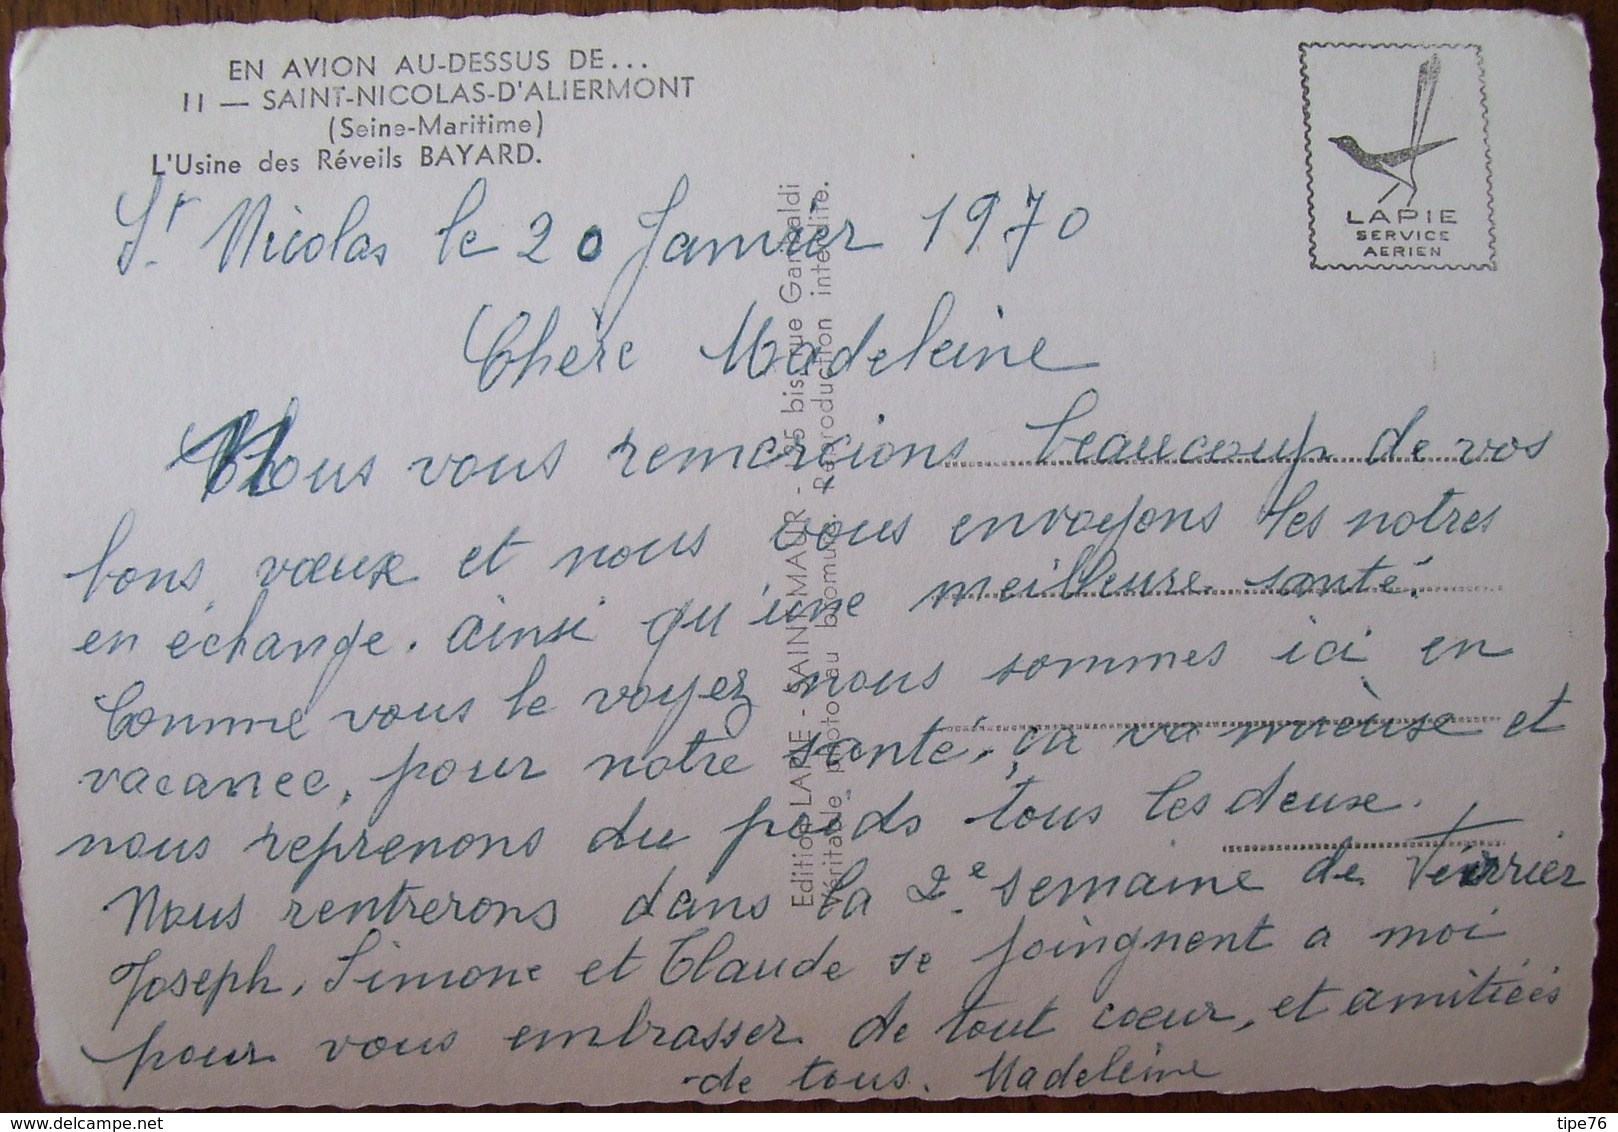 EN AVION AU-DESSUS DE...
11 — SAINT-NICOLAS-D'ALIERMONT
(Seine-Maritime)
L'Usine des Réveils BAYARD.
LAPIE
SERVICE
AERIEN
St Nicolas le 20 Janvier 1970
Chère Madeleine
Nous vous remercions beaucoup de vos
bons vœux et nous vous envoyons les notres
en échange. ainsi qu'une meilleure santé.
Comme vous le voyez nous sommes ici en
vacance, pour notre santé, ça va mieuse et
nous reprenons du poids tous les deux.
Nous rentrerons dans la 2e semaine de Février
Joseph, Simone et Claude se joingnent a moi
pour vous embrasser de tout cœur, et amitiées
de tous. Madeleine
Edition LAPIE - SAINT-MAUR - 95 bis, rue Garibaldi
Véritable photo au bromure. Reproduction interdite.
delcampe.net
tipe76